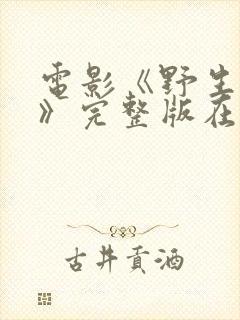 電影《野生
》完整版在
古井貢酒